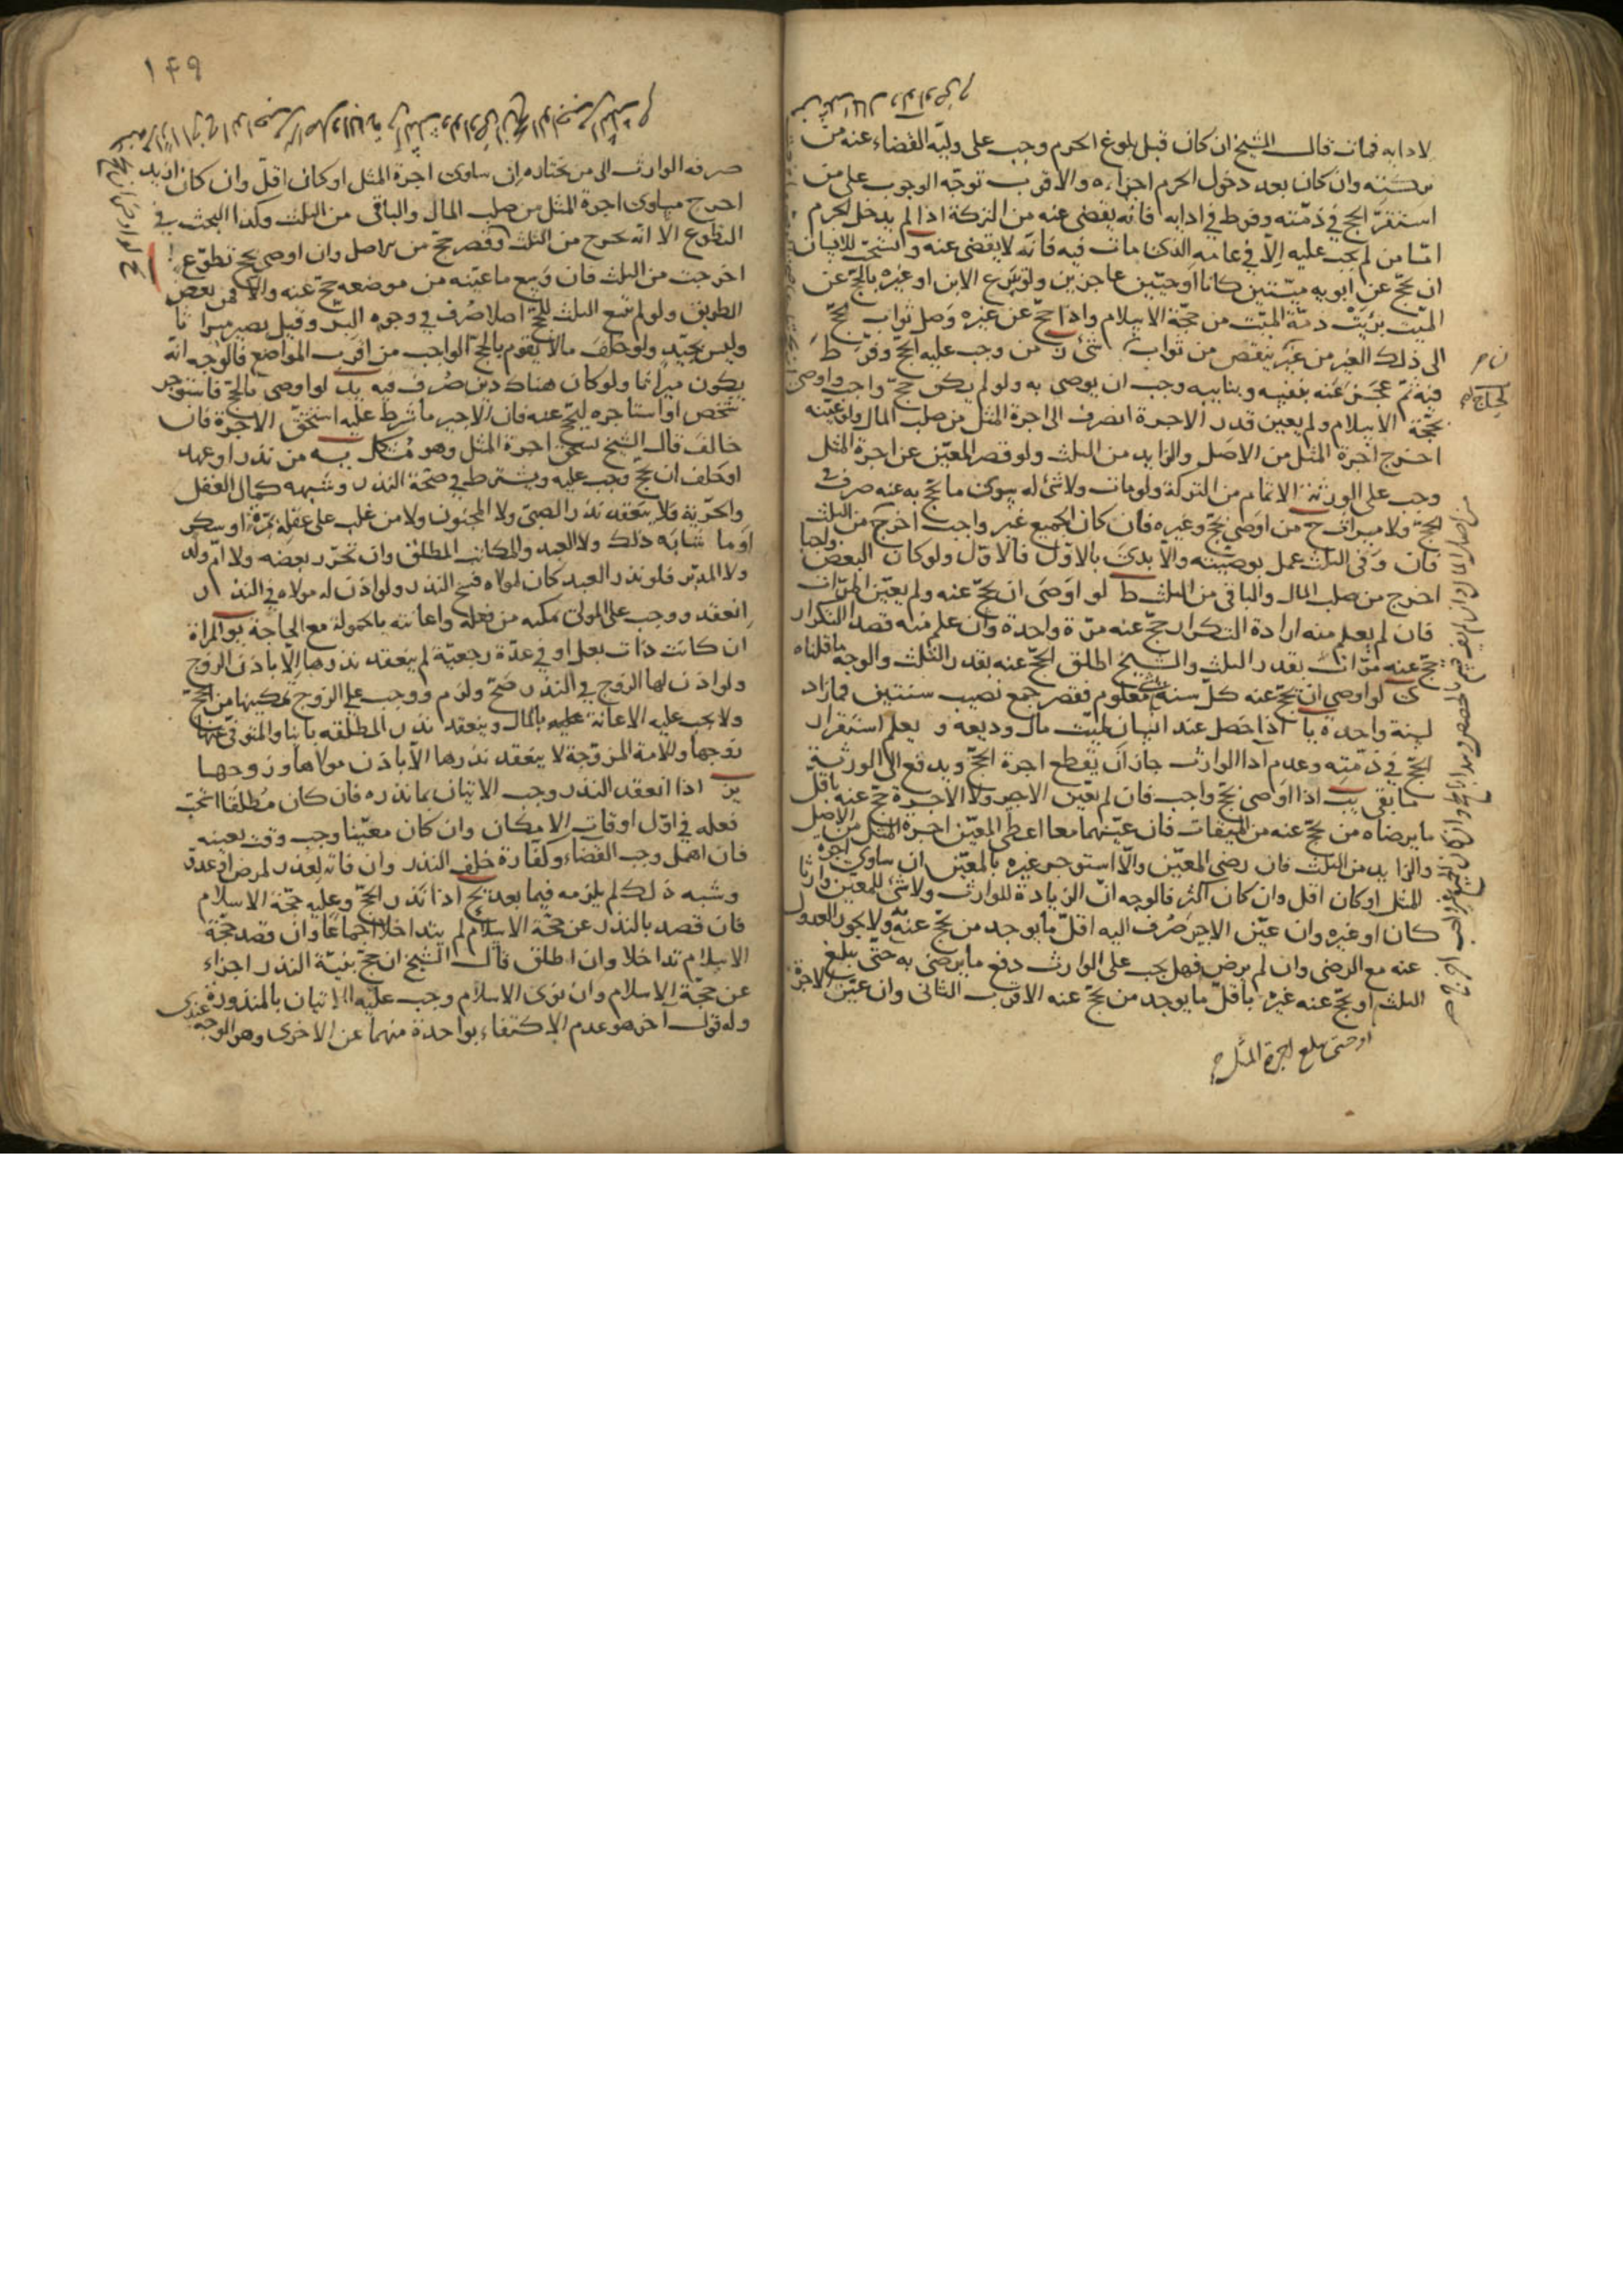 لادابه فمات قال الشيخ ان كان قبل بلوغ الحرم وجب على وليه القضاء عنه من
تركته وان كان بعد دخول الحرم اجزاءه والاقرب توجه الوجوب على من
استقر الحج في ذمته وفرط في ادايه فانه يقضى عنه من التركة اذا لم يدخل الحرم
امّا من لم يجب عليه الّا في عامه الذى مات فيه فانّه لا يقضى عنه و يستحب للانسان
ان يحج عن ابويه ميّتين كانا او حيّين عاجزين ولو تبرع الابن او غيره بالحجّ عن
الميّت برئت ذمّة الميّت من حجّة الاسلام واذا حجّ عن غيره وصل ثواب الحجّ
الى ذلك الغير من غير ينقص من ثوابه شئ من وجب عليه الحجّ وفرّط
فيه ثم عجز عنه بنفسه وبنايبه وجب ان يوصى به ولو لم يكن حجّ واجب واوصى
بحجّة الاسلام ولم يعين قدر الاجرة انصرف الى اجرة المثل من صلب المال ولو عيّنه
اخرج اجرة المثل من الاصل والزايد من الثلث ولو قصر المعيّن عن اجرة المثل
وجب على الورثة الاتمام من التركة ولو مات ولا شئ له سوى ما يحج به عنه صرف في
الحجّ ولا ميراث ح من اوصى بحجّ وغيره فان كان الجميع غير واجب اخرج من الثلث
فان وفى الثلث عمل بوصيّته والّا بدئ بالاوّل فالاوّل ولو كان البعض واجبا
اخرج من صلب المال والباقى من الثلث ط لو اوصى ان يحجّ عنه ولم يعيّن المرّات
فان لم يعلم منه ارادة التكرار حجّ عنه مرّة واحدة وان علم منه قصد التكرار
حجّ عنه مرّات بقدر الثلث والشيخ اطلق الحجّ عنه بقدر الثلث والوجه ما قلناه
ى لو اوصى ان يحجّ عنه كلّ سنة بمعلوم فقصر جمع نصيب سنتين فما زاد
لسنة واحدة يا اذا حصل عند انسان لميّت مال وديعه و يعلم استقرار
الحجّ في ذمّته وعدم ادا الوارث جاز ان يقطع اجرة الحجّ ويدفع الى الورثة
ما بقى يب اذا اوصى بحجّ واجب فان لم يعيّن الاجير ولا الاجرة حجّ عنه باقلّ
ما يرضاه من يحجّ عنه من الميقات فان عيّنهما معا اعطى المعيّن اجرة المثل من الاصل
والزايد من الثلث فان رضى المعيّن والّا استوجر غيره بالمعيّن ان ساوى اجرة
المثل او كان اقل وان كان اكثر فالوجه انّ الزيادة للوارث ولا شئ للمعيّن وارثا
كان او غيره وان عيّن الاجير صُرف اليه اقلّ ما يوجد من يحجّ عنه ولا يجوز العدول
عنه مع الرضى وان لم يرض فهل يجب على الوارث دفع ما يرضى به حتّى يبلغ
الثلث او يحجّ عنه غيره باقلّ ما يوجد من يحجّ عنه الاقرب الثانى وان عيّن الاجرة
او حتى يبلغ اجرة المثل
١٤٩
صرفه الوارث الى من يختاره ان ساوى اجرة المثل او كان اقلّ وان كان ازيد
اخرج مساوى اجرة المثل من صلب المال والباقى من الثلث وكذا البحث في
التطوع الا انّه يخرج من الثلث وان اوصى بحج تطوّع
اخرجت من الثلث فان وسع ما عيّنه من موضعه حجّ عنه والّا فمن بعض
الطريق ولو لم يسع الثلث للحجّ اصلا صُرف في وجوه البرّ وقيل يصير ميراثا
وليس بجيّد ولو خلّف مالا يقوم بالحجّ الواجب من اقرب المواضع فالوجه انّه
يكون ميراثا ولو كان هناك دين صُرف فيه يد لو اوصى بالحجّ فاستوجر
شخص او استاجره ليحجّ عنه فان الاجير ما شرط عليه استحقّ الاجرة فان
خالف قال الشيخ يستحق اجرة المثل وهو مشكل يه من نذر او عهد
او حلف ان يحجّ وجب عليه ويشترط في صحّة النذر وشبهه كمال العقل
والحرّية فلا ينعقد نذر الصبيّ ولا المجنون ولا من غلب على عقله بمرّة او سكر
او ما شابه ذلك ولا العبد والمكاتب المطلق وان تحرّر بعضه ولا امّ ولد
ولا المدبّر فلو نذر العبد كان لمولاه فسخ النذر ولو اذن له مولاه في النذر
انعقد ووجب على المولى تمكينه من فعله واعانته بالحمولة مع الحاجة يو المراة
ان كانت ذات بعل او في عدّة رجعيّة لم ينعقد نذرها الّا باذن الزوج
ولو اذن لها الزوج في النذر صحّ ولزم ووجب على الزوج تمكينها من الحجّ
ولا يجب عليه الاعانة بالمال وينعقد نذر المطلّقه باينا والمتوفّى عنها
زوجها والامة المزوّجة لا ينعقد نذرها الّا باذن مولاها وزوجها
يز اذا انعقد النذر وجب الاتيان بما نذره فان كان مطلقا استحبّ
فعله في اوّل اوقات الامكان وان كان معيّنا وجب وقت تعينه
فان اهمل وجب القضاء وكفّارة خلف النذر وان فاته لعذر لمرض او عدوّ
وشبه ذلك لم يلزمه فيما بعد يح اذا نذر الحجّ وعليه حجّة الاسلام
فان قصد بالنذر عن حجّة الاسلام لم يتداخلا اجماعًا وان قصد حجّة
الاسلام تداخلا وان اطلق قال الشيخ ان حجّ بنيّة النذر اجزاء
عن حجّة الاسلام وان نوى الاسلام وجب عليه الاتيان بالمنذورة
وله قول آخر هو عدم الاكتفاء بواحدة منهما عن الاخرى وهو الوجه عندى